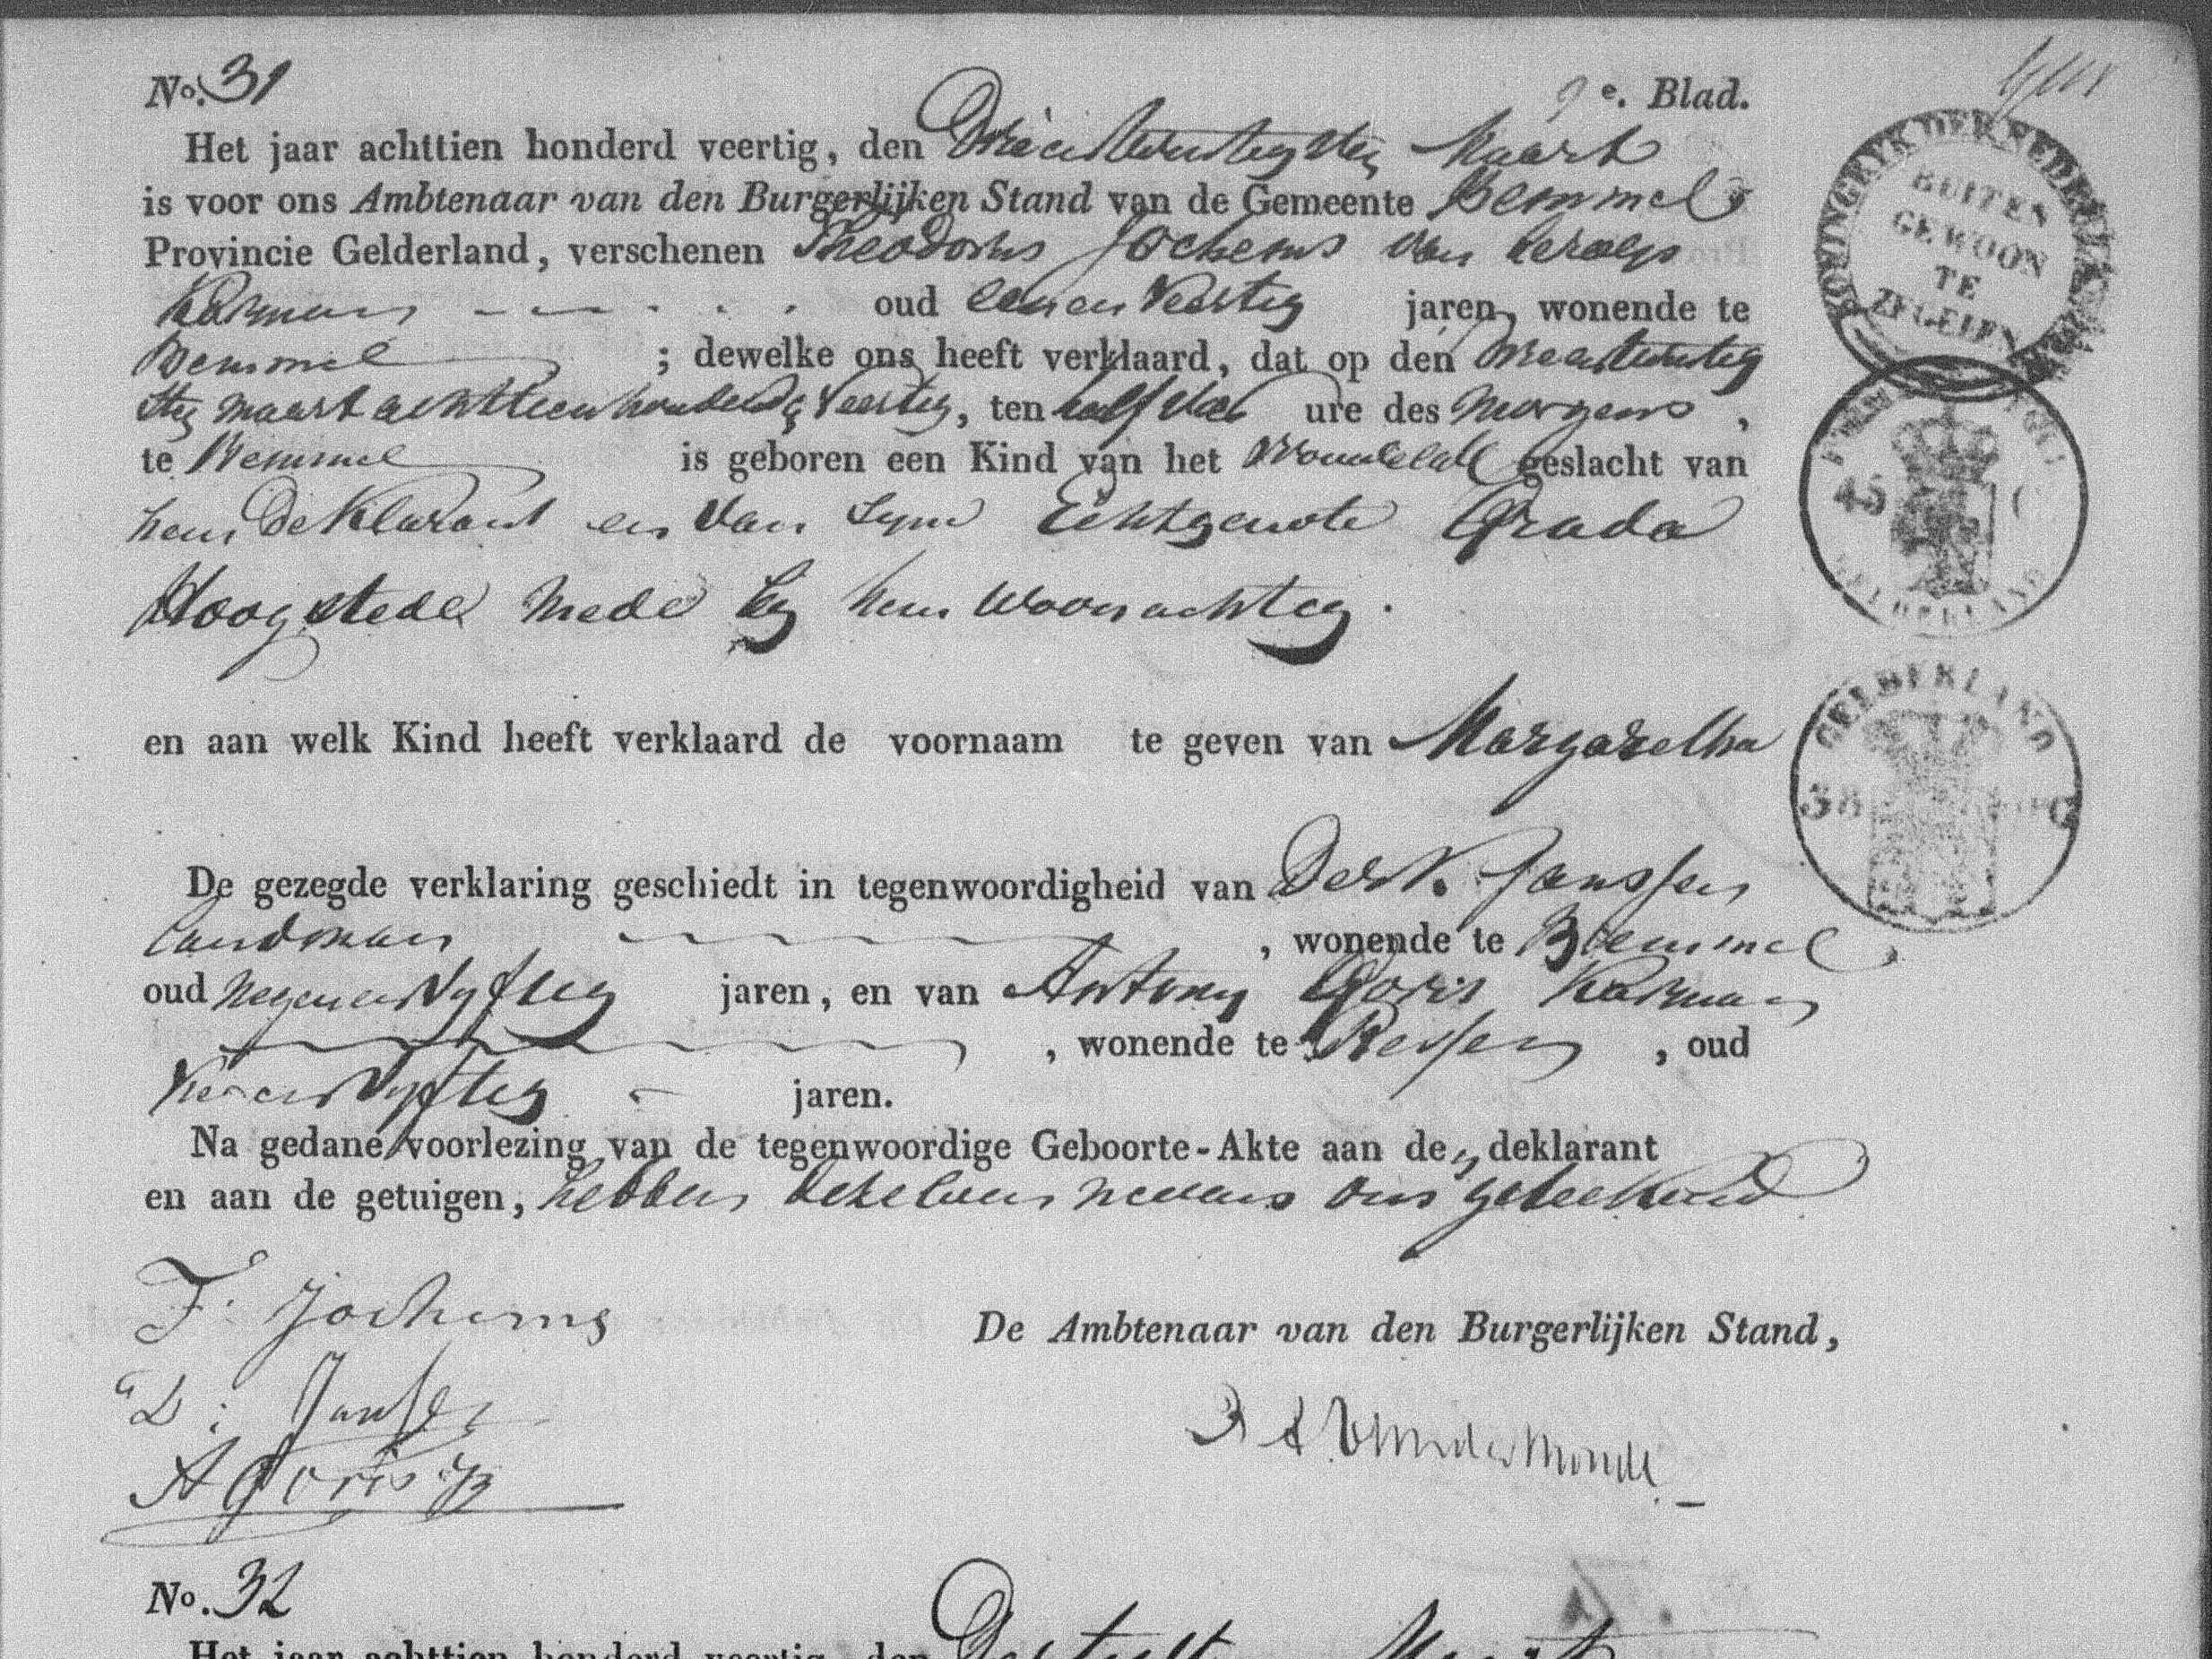 No. 31
9e. Blad.
Het jaar achttien honderd veertig, den Drieentwintigsten Maart
is voor ons Ambtenaar van den Burgerlijken Stand van de Gemeente Bemmel
Provincie Gelderland, verschenen Theodorus Jochems van beroep
oud eenen Veertig jaren, wonende te
Bemmel ; dewelke ons heeft verklaard, dat op den Drieentwintig
sten maart achttienhonderd Veertig, ten half ure des morgens,
te Bemmel is geboren een Kind van het Vrouwelijk geslacht van
hem Deklarant en Van Zyne Echtgenote Grada
Hoogstede mede by hem Woonachteg.
en aan welk Kind heeft verklaard de voornaam te geven van Margaretha
De gezegde verklaring geschiedt in tegenwoordigheid van Derk Janssen
Landman , wonende te Bemmel
oud Negenenvyfteg jaren, en van Antony Goris
, wonende te Ressen , oud
jaren.
Na gedane voorlezing van de tegenwoordige Geboorte-Akte aan den deklarant
en aan de getuigen, hebben dezelven nevens ons geteekend
T. Jochems
De Ambtenaar van den Burgerlijken Stand,
D: Jansen
A Goris
No. 32
Het jaar achttien honderd veertig, den Maart
KONINGRYK DER NEDERLANDEN
BUITEN
GEWOON
TE
ZEGELEN
45
GELDERLAND
GELDERLAND
38